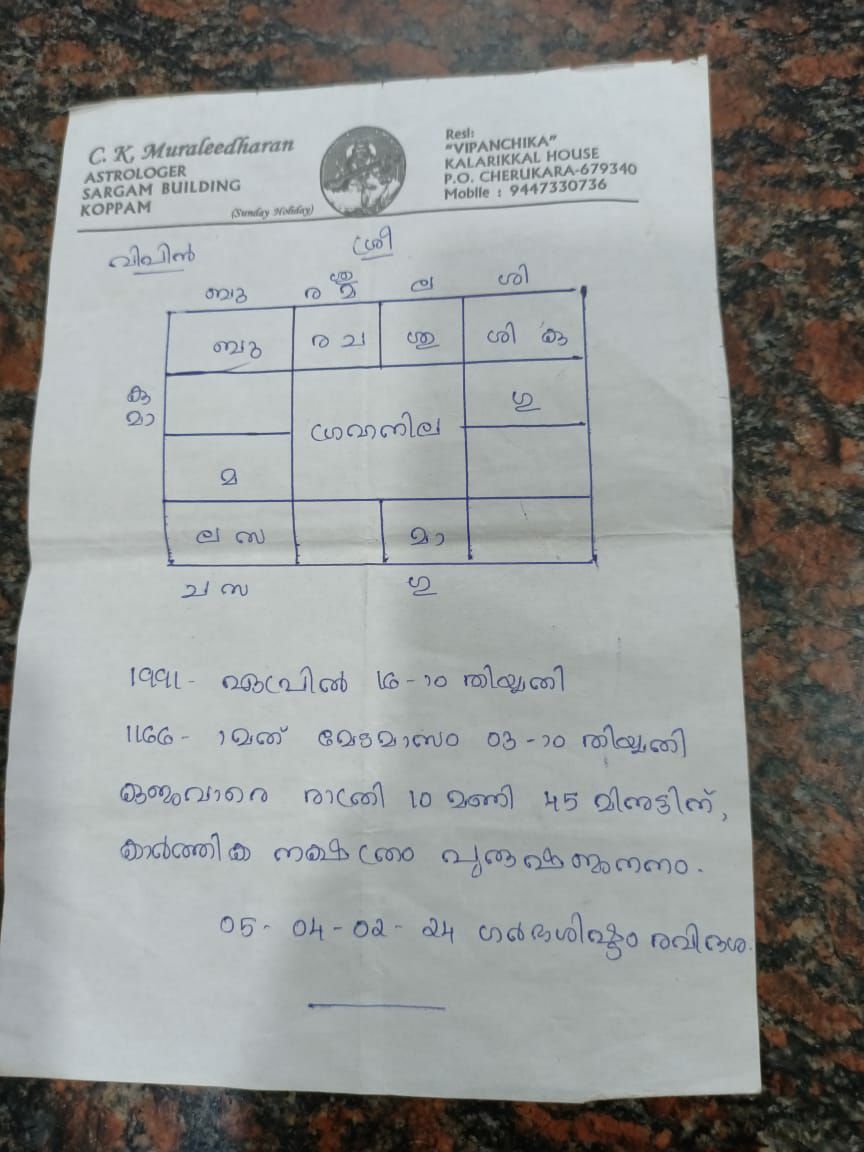 C. K. Muraleedharan
ASTROLOGER
SARGAM BUILDING
KOPPAM
(Sunday Holiday)
Resi:
"VIPANCHIKA"
KALARIKKAL HOUSE
P.O. CHERUKARA-679340
Mobile : 9447330736
വിപിൻ
ശ്രീ
ബു ര മ ല ശി
ബു ര ച ശു ശി കു
കു
മാ
ഗു
ഗ്രഹനില
മ
ല സ മാ
ച സ ഗു
1991 - ഏപ്രിൽ 16-ാം തിയ്യതി
1166 - ാമത് മേടമാസം 03-ാം തിയ്യതി
കുജവാരെ രാത്രി 10 മണി 45 മിനുട്ടിന്,
കാർത്തിക നക്ഷത്രം പുരുഷജനനം.
05 - 04 - 02 - 24 ഗർഭശിഷ്ടം രവിദശ.